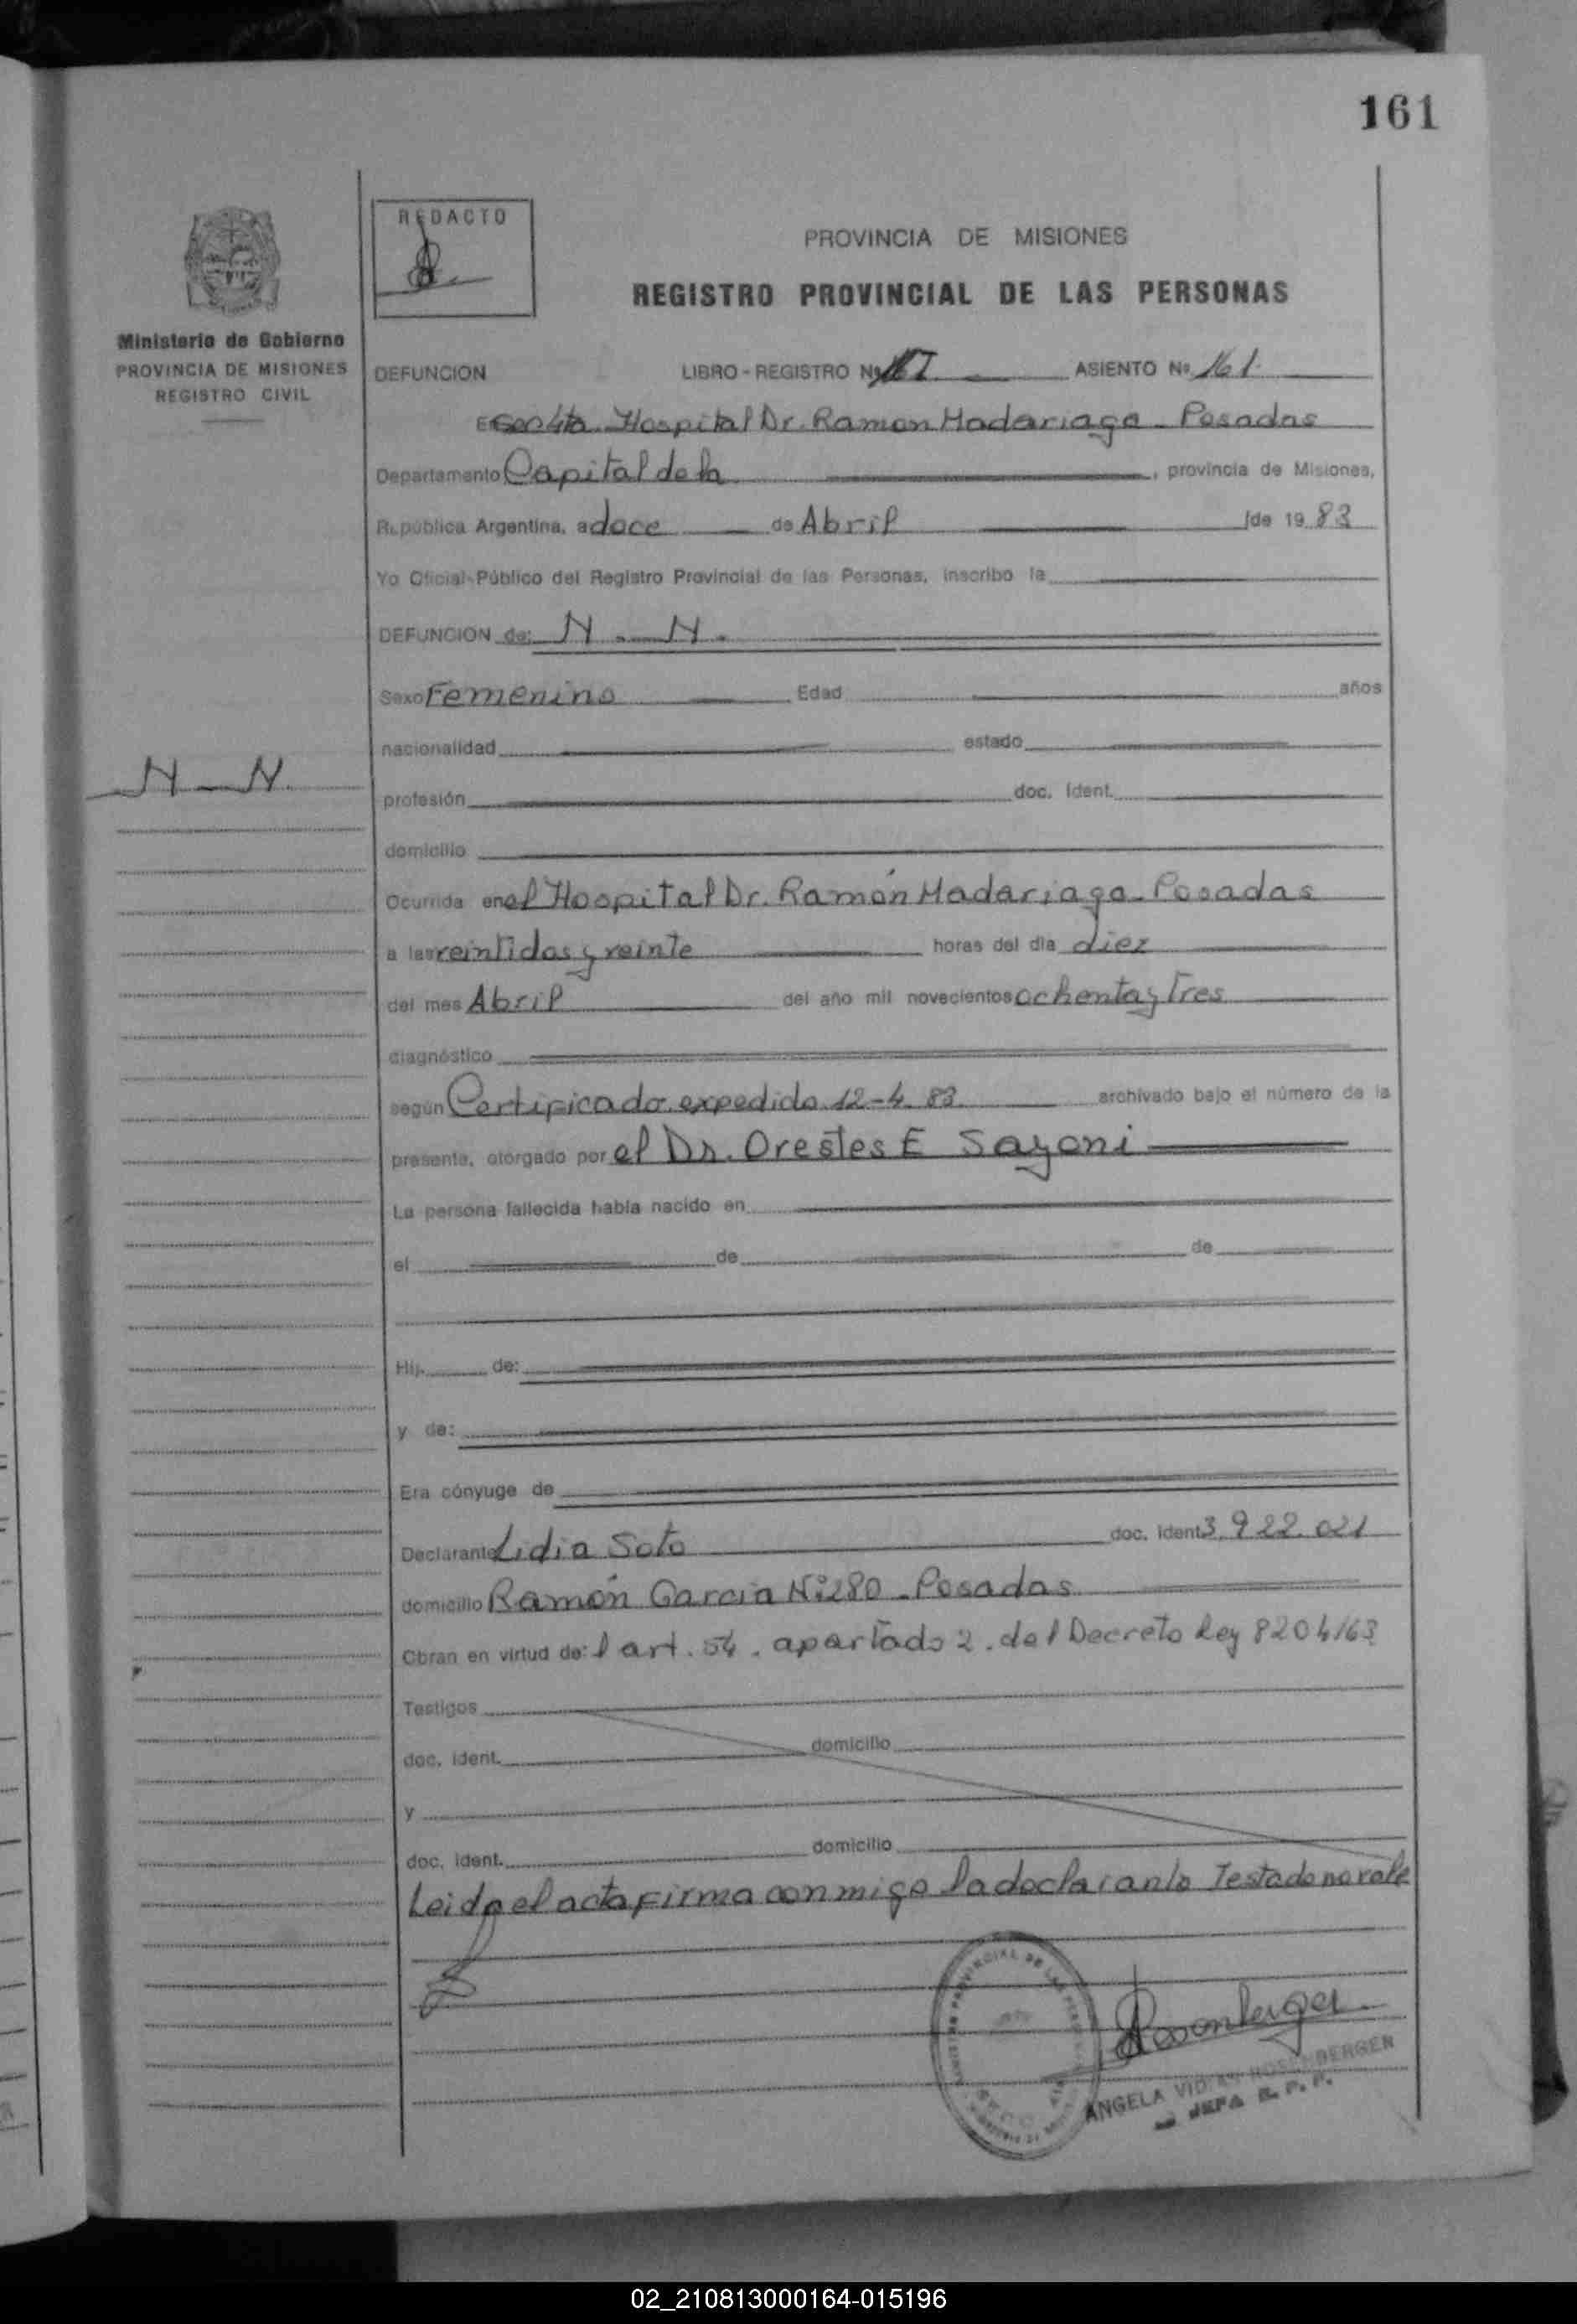 161
REDACTO
PROVINCIA DE MISIONES
REGISTRO PROVINCIAL DE LAS PERSONAS
Ministerio de Gobierno
PROVINCIA DE MISIONES
REGISTRO CIVIL
DEFUNCION LIBRO - REGISTRO Nº I ASIENTO Nº 161.
Hospital Dr. Ramon Madariaga - Posadas
Departamento Capital de la, provincia de Misiones,
República Argentina, a doce de Abril de 19 83
Yo Oficial Público del Registro Provincial de las Personas, inscribo la
DEFUNCION de: N. N.
Sexo Femenino Edad años
nacionalidad estado
N - N.
profesión doc. Ident.
domicilio
Ocurrida en el Hospital Dr. Ramón Madariaga - Posadas
a las veintidos y veinte horas del día diez
del mes Abril del año mil novecientos ochenta y Tres
diagnóstico
según Certificado expedido 12-4-83 archivado bajo el número de la
presente, otorgado por el Dr. Orestes E Sayoni
La persona fallecida había nacido en
el de de
Hij de:
y de:
Era cónyuge de
Declarante Lidia Soto doc. Ident 3.922.021
domicilio Ramón Garcia Nº 280 - Posadas
Obran en virtud de: l art. 54. apartado 2. del Decreto Ley 8204/63
Testigos
doc. ident. domicilio
y
doc. ident. domicilio
Leida el acta firma conmigo la declarante Testado no vale
Rosenberger
ANGELA ROSENBERGER
JEFA R. P. P.
02_210813000164-015196